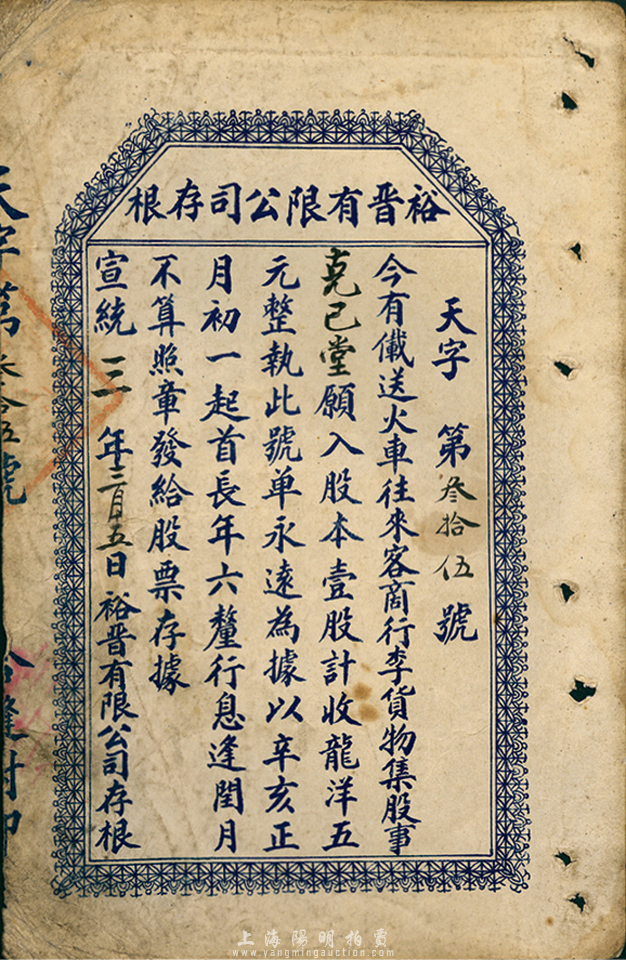 裕晋有限公司存根
天字第叄拾伍號
今有儎送火車往來客商行李貨物集股事
克已堂願入股本壹股計收龍洋五
元整執此號单永遠為據以辛亥正
月初一起首長年六釐行息逢閏月
不算照章發給股票存據
宣統三年三月五日裕晋有限公司存根
天字第叄拾伍號
上海陽明拍賣
www.yangmingauction.com